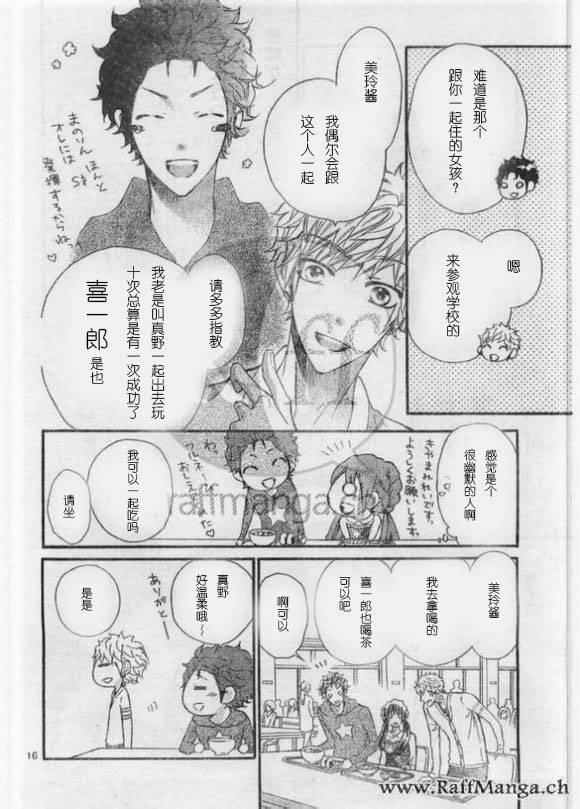 难道是那个
跟你一起住的女孩？
嗯
来参观学校的
美玲酱
我偶尔会跟
这个人一起
まのりん ほんと
オレには Sを
発揮するからねっ
请多多指教
我老是叫真野一起出去玩
十次总算是有一次成功了
喜一郎
是也
感觉是个
很幽默的人啊
きやまみれいです。
よろしくお願いします。
我可以一起吃吗
请坐
美玲酱
我去拿喝的
喜一郎也喝茶
可以吧
啊可以
真野
好温柔哦~
ありがとー
是是
16
raffmanga.ch
www.RaffManga.ch